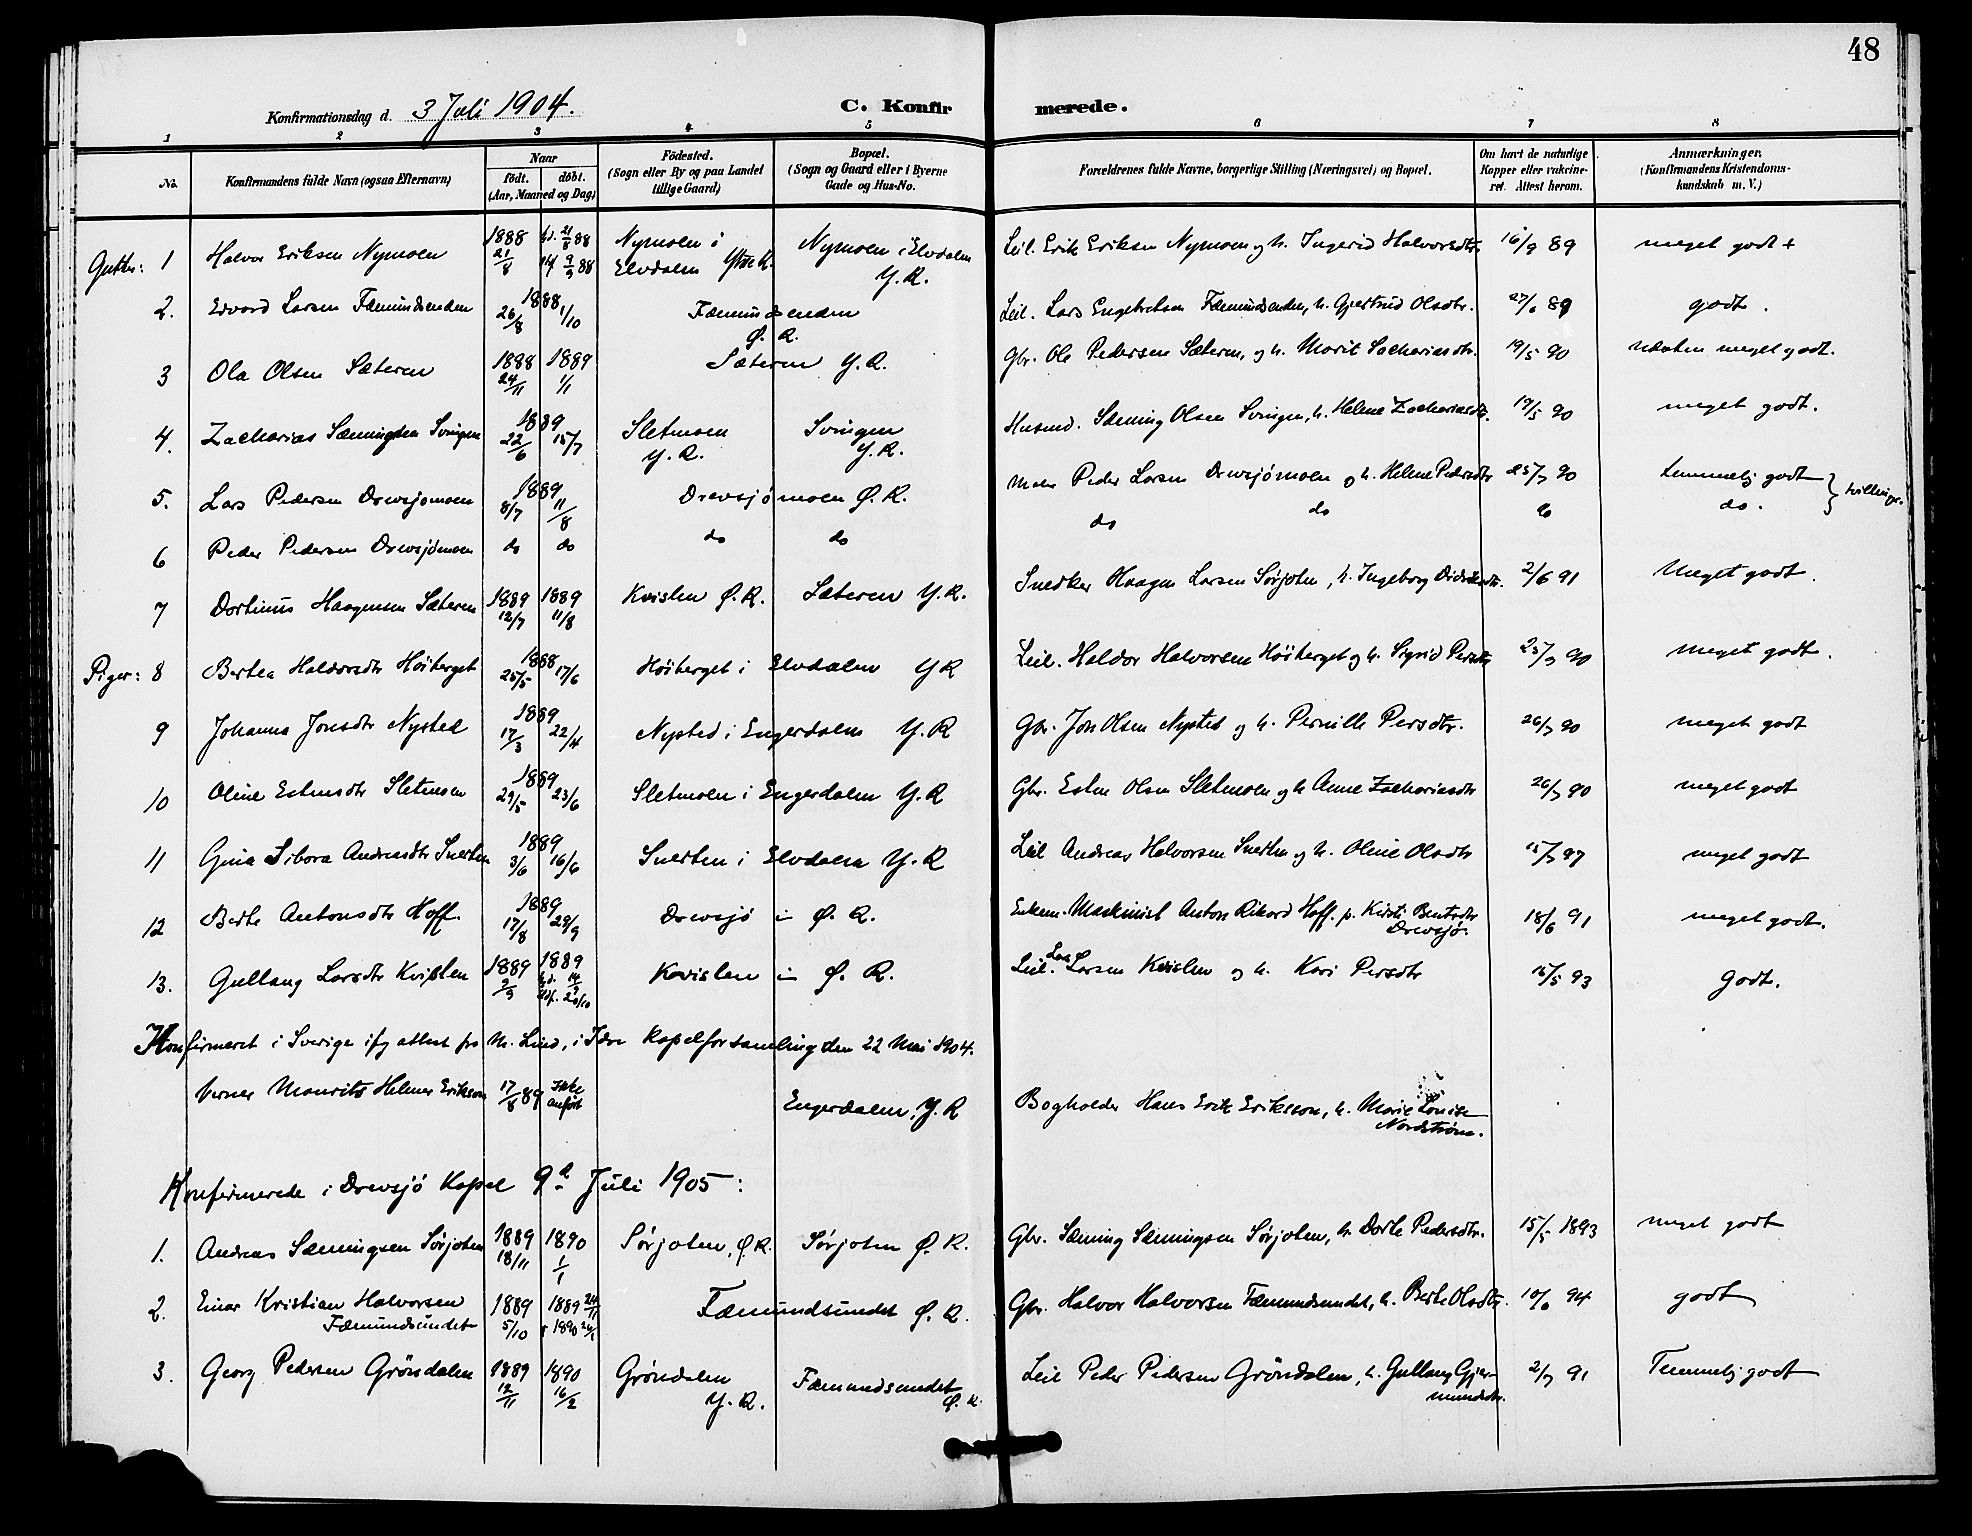 48
Konfirmationsdag d. 3 Juli 1904.
C. Konfirmerede.
1 2 3 4 5 6 7 8
No.
Konfirmandens fulde Navn (ogsaa Efternavn)
Naar
födt. döbt.
(Aar, Maaned og Dag)
Födested.
(Sogn eller By og paa Landet
tillige Gaard)
Bopæl.
(Sogn og Gaard eller i Byerne
Gade og Hus-No.
Forældrenes fulde Navne, borgerlige Stilling (Næringsvei) og Bopæl.
Om havt de naturlige
Kopper eller vakcine-
ret. Attest herom.
Anmærkninger.
(Konfirmandens Kristendoms-
kundskab m. V.)
Gutter: 1 Halvor Eriksen Nymoen 1888 21/8 hd. 21/8 88 9/9 88 Nymoen i Elvdalen Ytre R. Nymoen i Elvdalen Y.R. Leil. Erik Eriksen Nymoen og h. Ingerid Halvorsdtr 16/9 89 meget godt +
2. Edvard Larsen Fæmundsenden 1888 26/8 1/10 Fæmundsenden Ø. R. Leil. Lars Engebretsen Fæmundsenden, h. Gjertrud Olsdtr. 27/6 89 godt.
3 Ola Olsen Sæteren 1888 24/11 1889 1/1 Sæteren Y. R. Gbr. Ole Pedersen Sæteren, og h. Marit Zachariasdtr. 19/5 90 næsten meget godt.
4. Zacharias Sæmingsen Svingen 1889 22/6 15/7 Sletmoen Y. R. Svingen Y.R. Husmd. Sæming Olsen Svingen, h. Helene Zachariasdtr. 19/5 90 meget godt.
5. Lars Pedersen Drevsjømoen 1889 8/7 11/8 Drevsjømoen Ø. R. Peder Larsen Drevsjømoen og h. Helene Pedersdtr 25/7 90 temmelig godt } tvillinger.
6 Peder Pedersen Drevsjömoen do do do do do do do do.
7 Dortinus Haagensen Sæteren 1889 12/7 1889 11/8 Kvislen Ø. R. Sæteren Y. R. Snedker Haagen Larsen Sørjoten, h. Ingeborg Didriksdtr. 2/6 91 Meget godt.
Piger: 8 Bertea Haldorsdtr Höiberget 1888 25/5 17/6 Höiberget i Elvdalen Y R Leil. Haldor Halvorsen Höiberget og h. Sigrid Persdtr 25/7 90 meget godt.
9 Johanna Jonsdtr Nysted 1889 17/3 22/4 Nysted i Engerdalen Y. R Gbr. Jon Olsen Nysted og h. Pernille Persdtr. 26/7 90 meget godt
10 Oline Estensdtr Sletmoen 1889 29/5 23/6 Sletmoen i Engerdalen Y. R Gbr. Esten Olsen Sletmoen og h Anne Zachariasdtr 26/7 90 meget godt
11 Gina Andreasdtr Snerten 1889 3/6 16/6 Snerten i Elvdalen Y. R Leil Andreas Halvorsen Snerten og h. Oline Olsdtr 15/7 97 meget godt
12 Berte Antonsdtr Hoff. 1889 17/8 29/9 Drevsjø i Ø. R. Enkem. Maskinist Anton Rikard Hoff. p. Kirsti Bentsdtr Drevsjø. 18/6 91 meget godt.
13. Gullaug Larsdtr Kvislen 1889 9/9 1889 hd. 14/9 20/10 Kvislen i Ø. R. Leil. Lars Larsen Kvislen og h. Kari Persdtr 15/5 93 Godt.
Konfirmeret i Sverige ifg attest fra N. Lind, i Idre Kapelforsamling den 22 Mai 1904.
Verner Mauritz Helmer Erikson 17/8 89 Ikke anført Engerdalen, Y. R Bogholder Hans Erik Eriksson, h. Marie Louise Nordstrøm.
Konfirmerede i Drevsjö Kapel 9d Juli 1905:
1. Andreas Sæmingsen Sørjoten 1889 18/11 1890 1/1 Sørjoten, Ø. R. Sörjoten Ø. R. Gbr. Sæming Sæmingsen Sørjoten, h. Dorte Pedersdtr. 15/5 1893 meget godt
2. Einar Kristian Halvorsen Fæmundsundet 1889 5/10 1889 24/11 1890 Fæmundsundet Ø. R. Gbr. Halvor Halvorsen Fæmundsundet, h. Berte Olsdtr. 10/6 94 godt
3. Georg Pedersen Gröndalen 1889 12/11 1890 16/2 Gröndalen Y. R. Fæmundsundet Ø. R. Leil Peder Pedersen Gröndalen, h. Gullaug Gjermundsdtr. 2/7 91 Temmelig godt